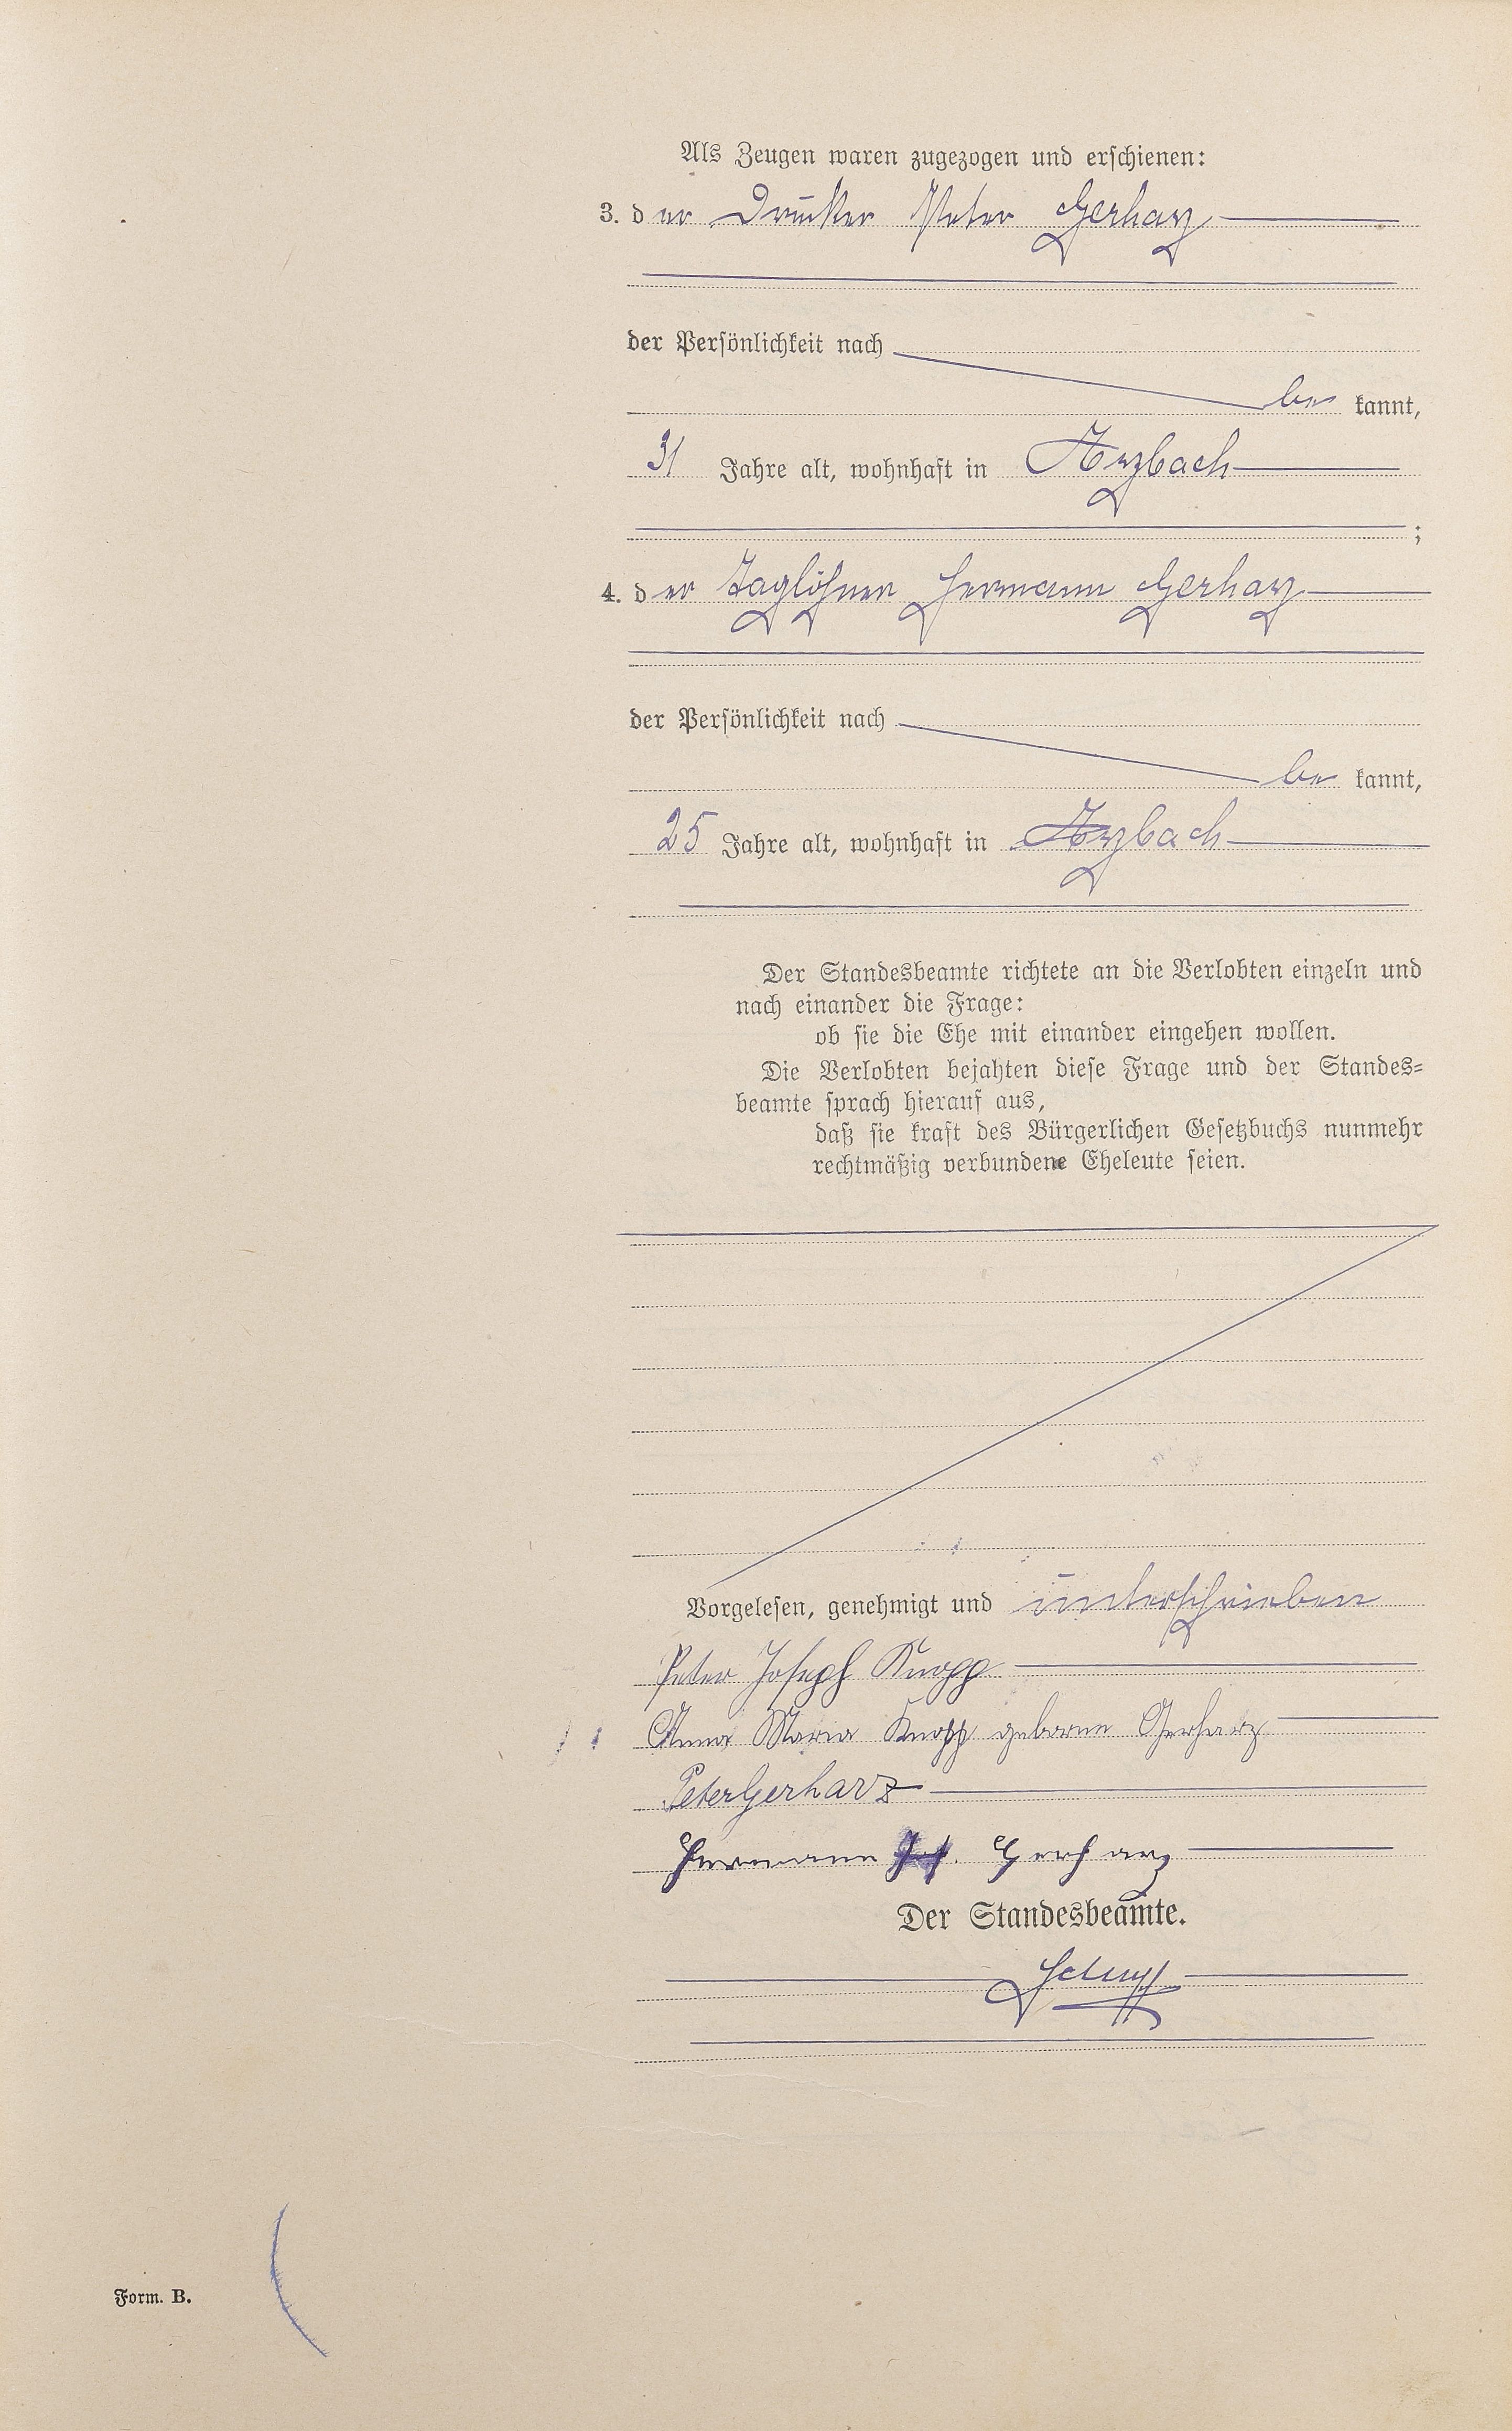 Als Zeugen waren zugezogen und erschienen:
3. der Drucker Peter Gerharz
der Persönlichkeit nach
be kannt,
31 Jahre alt, wohnhaft in Arzbach
;
4. der Taglöhner Hermann Gerharz
der Persönlichkeit nach
be kannt,
25 Jahre alt, wohnhaft in Arzbach
Der Standesbeamte richtete an die Verlobten einzeln und
nach einander die Frage:
ob sie die Ehe mit einander eingehen wollen.
Die Verlobten bejahten diese Frage und der Standes=
beamte sprach hierauf aus,
daß sie kraft des Bürgerlichen Gesetzbuchs nunmehr
rechtmäßig verbundene Eheleute seien.
Vorgelesen, genehmigt und unterschrieben
Peter Joseph Knopp
Anna Maria Knopp geborene Gerharz
Peter Gerharz
Hermann Jos. Gerharz
Der Standesbeamte.
Form. B.